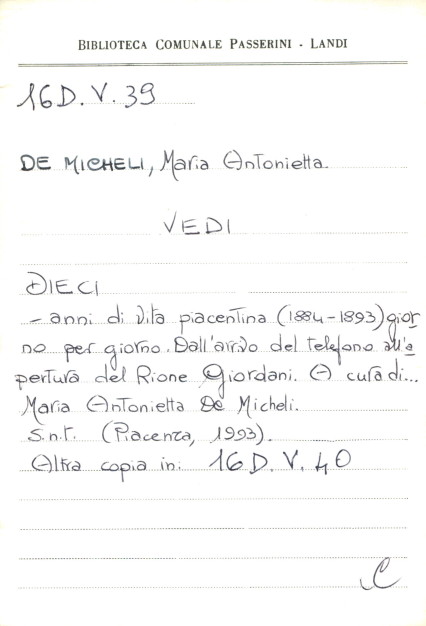 BIBLIOTECA COMUNALE PASSERINI - LANDI
16D. V. 39
DE MICHELI, Maria Antonietta.
VEDI
DIECI
- anni di vita piacentina (1884-1893) gior
no per giorno. Dall'arrivo del telefono all'a
pertura del Rione Giordani. A cura di...
Maria Antonietta De Micheli.
s.n.t. (Piacenza, 1993).
Altra copia in: 16 D. V. 40
C